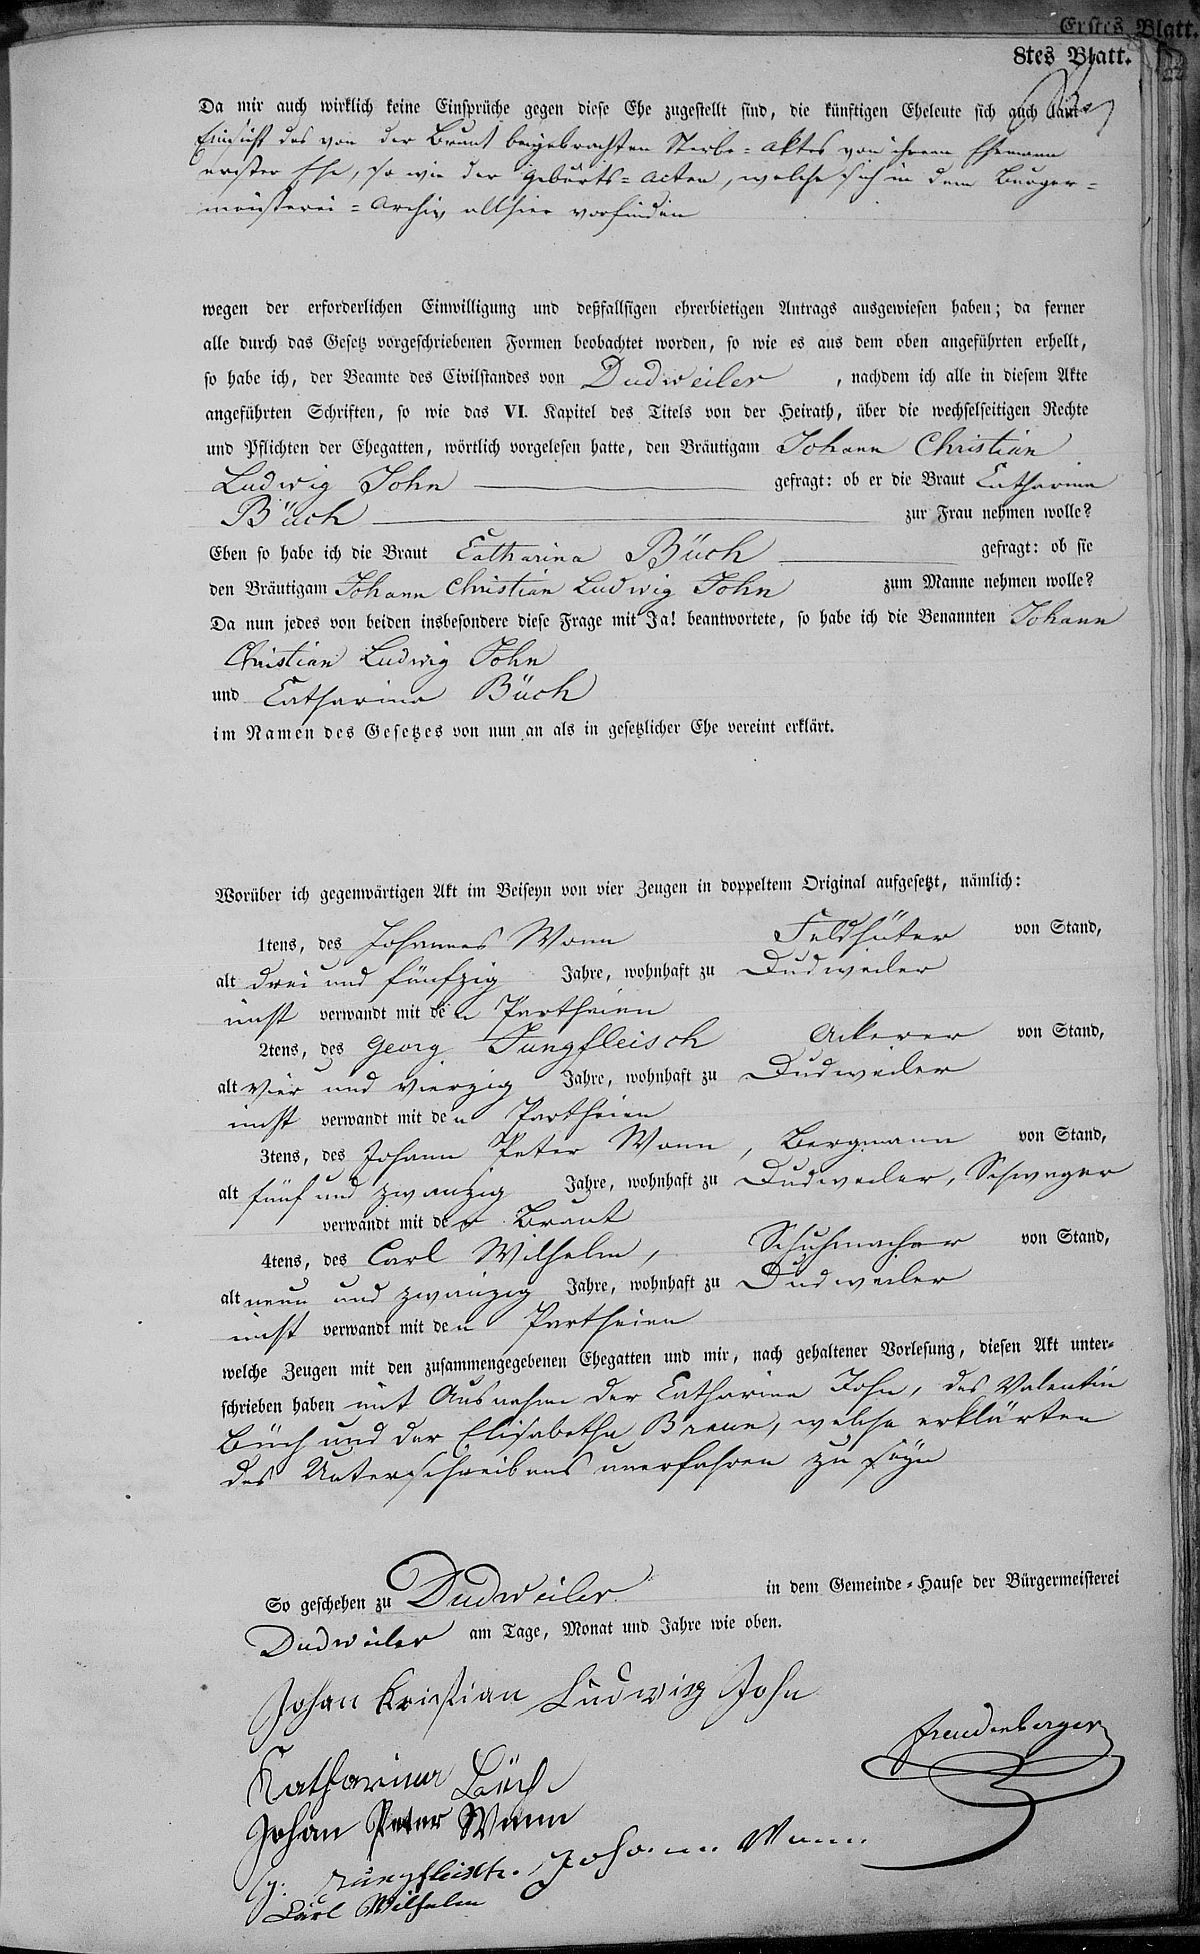 Erstes Blatt.
8tes Blatt.
Da mir auch wirklich keine Einsprüche gegen diese Ehe zugestellt sind, die künftigen Eheleute sich auch
Einsicht des von der Braut beigebrachten Sterbe-Aktes von ihrem Ehemann
erster Ehe, so wie der Geburts-Acten, welche sich in dem Burger-
meisterei-Archiv allhier vorfinden
wegen der erforderlichen Einwilligung und deßfallsigen ehrerbietigen Antrags ausgewiesen haben; da ferner
alle durch das Gesetz vorgeschriebenen Formen beobachtet worden, so wie es aus dem oben angeführten erhellt,
so habe ich, der Beamte des Civilstandes von Dudweiler, nachdem ich alle in diesem Akte
angeführten Schriften, so wie das VI. Kapitel des Titels von der Heirath, über die wechselseitigen Rechte
und Pflichten der Ehegatten, wörtlich vorgelesen hatte, den Bräutigam Johann Christian
Ludwig John gefragt: ob er die Braut Catharina
Büch zur Frau nehmen wolle?
Eben so habe ich die Braut Catharina Büch gefragt: ob sie
den Bräutigam Johann Christian Ludwig John zum Manne nehmen wolle?
Da nun jedes von beiden insbesondere diese Frage mit Ja! beantwortete, so habe ich die Benannten Johann
Christian Ludwig John
und Catharina Büch
im Namen des Gesetzes von nun an als in gesetzlicher Ehe vereint erklärt.
Worüber ich gegenwärtigen Akt im Beiseyn von vier Zeugen in doppeltem Original aufgesetzt, nämlich:
1tens, des Johannes Wonn Feldhüter von Stand,
alt drei und fünfzig Jahre, wohnhaft zu Dudweiler
nicht verwandt mit den Partheien
2tens, des Georg Jungfleisch Ackerer von Stand,
alt vier und vierzig Jahre, wohnhaft zu Dudweiler
nicht verwandt mit den Partheien
3tens, des Johann Peter Wonn, Bergmann von Stand,
alt fünf und zwanzig Jahre, wohnhaft zu Dudweiler, Schwager
verwandt mit der Braut
4tens, des Carl Wilhelm, Schuhmacher von Stand,
alt neun und zwanzig Jahre, wohnhaft zu Dudweiler
nicht verwandt mit den Partheien
welche Zeugen mit den zusammengegebenen Ehegatten und mir, nach gehaltener Vorlesung, diesen Akt unter-
schrieben haben mit Ausnahme der Catharina John, des Valentin
Büch und der Elisabetha Braun, welche erklärten
des Unterschreibens unerfahren zu seyn
So geschehen zu Dudweiler in dem Gemeinde-Hause der Bürgermeisterei
Dudweiler am Tage, Monat und Jahre wie oben.
Johan Kristian Ludwig John
Freudenberger
Katharina Büch
Johan Peter Wonn
G. Jungfleisch. Johann Wonn
Carl Wilhelm